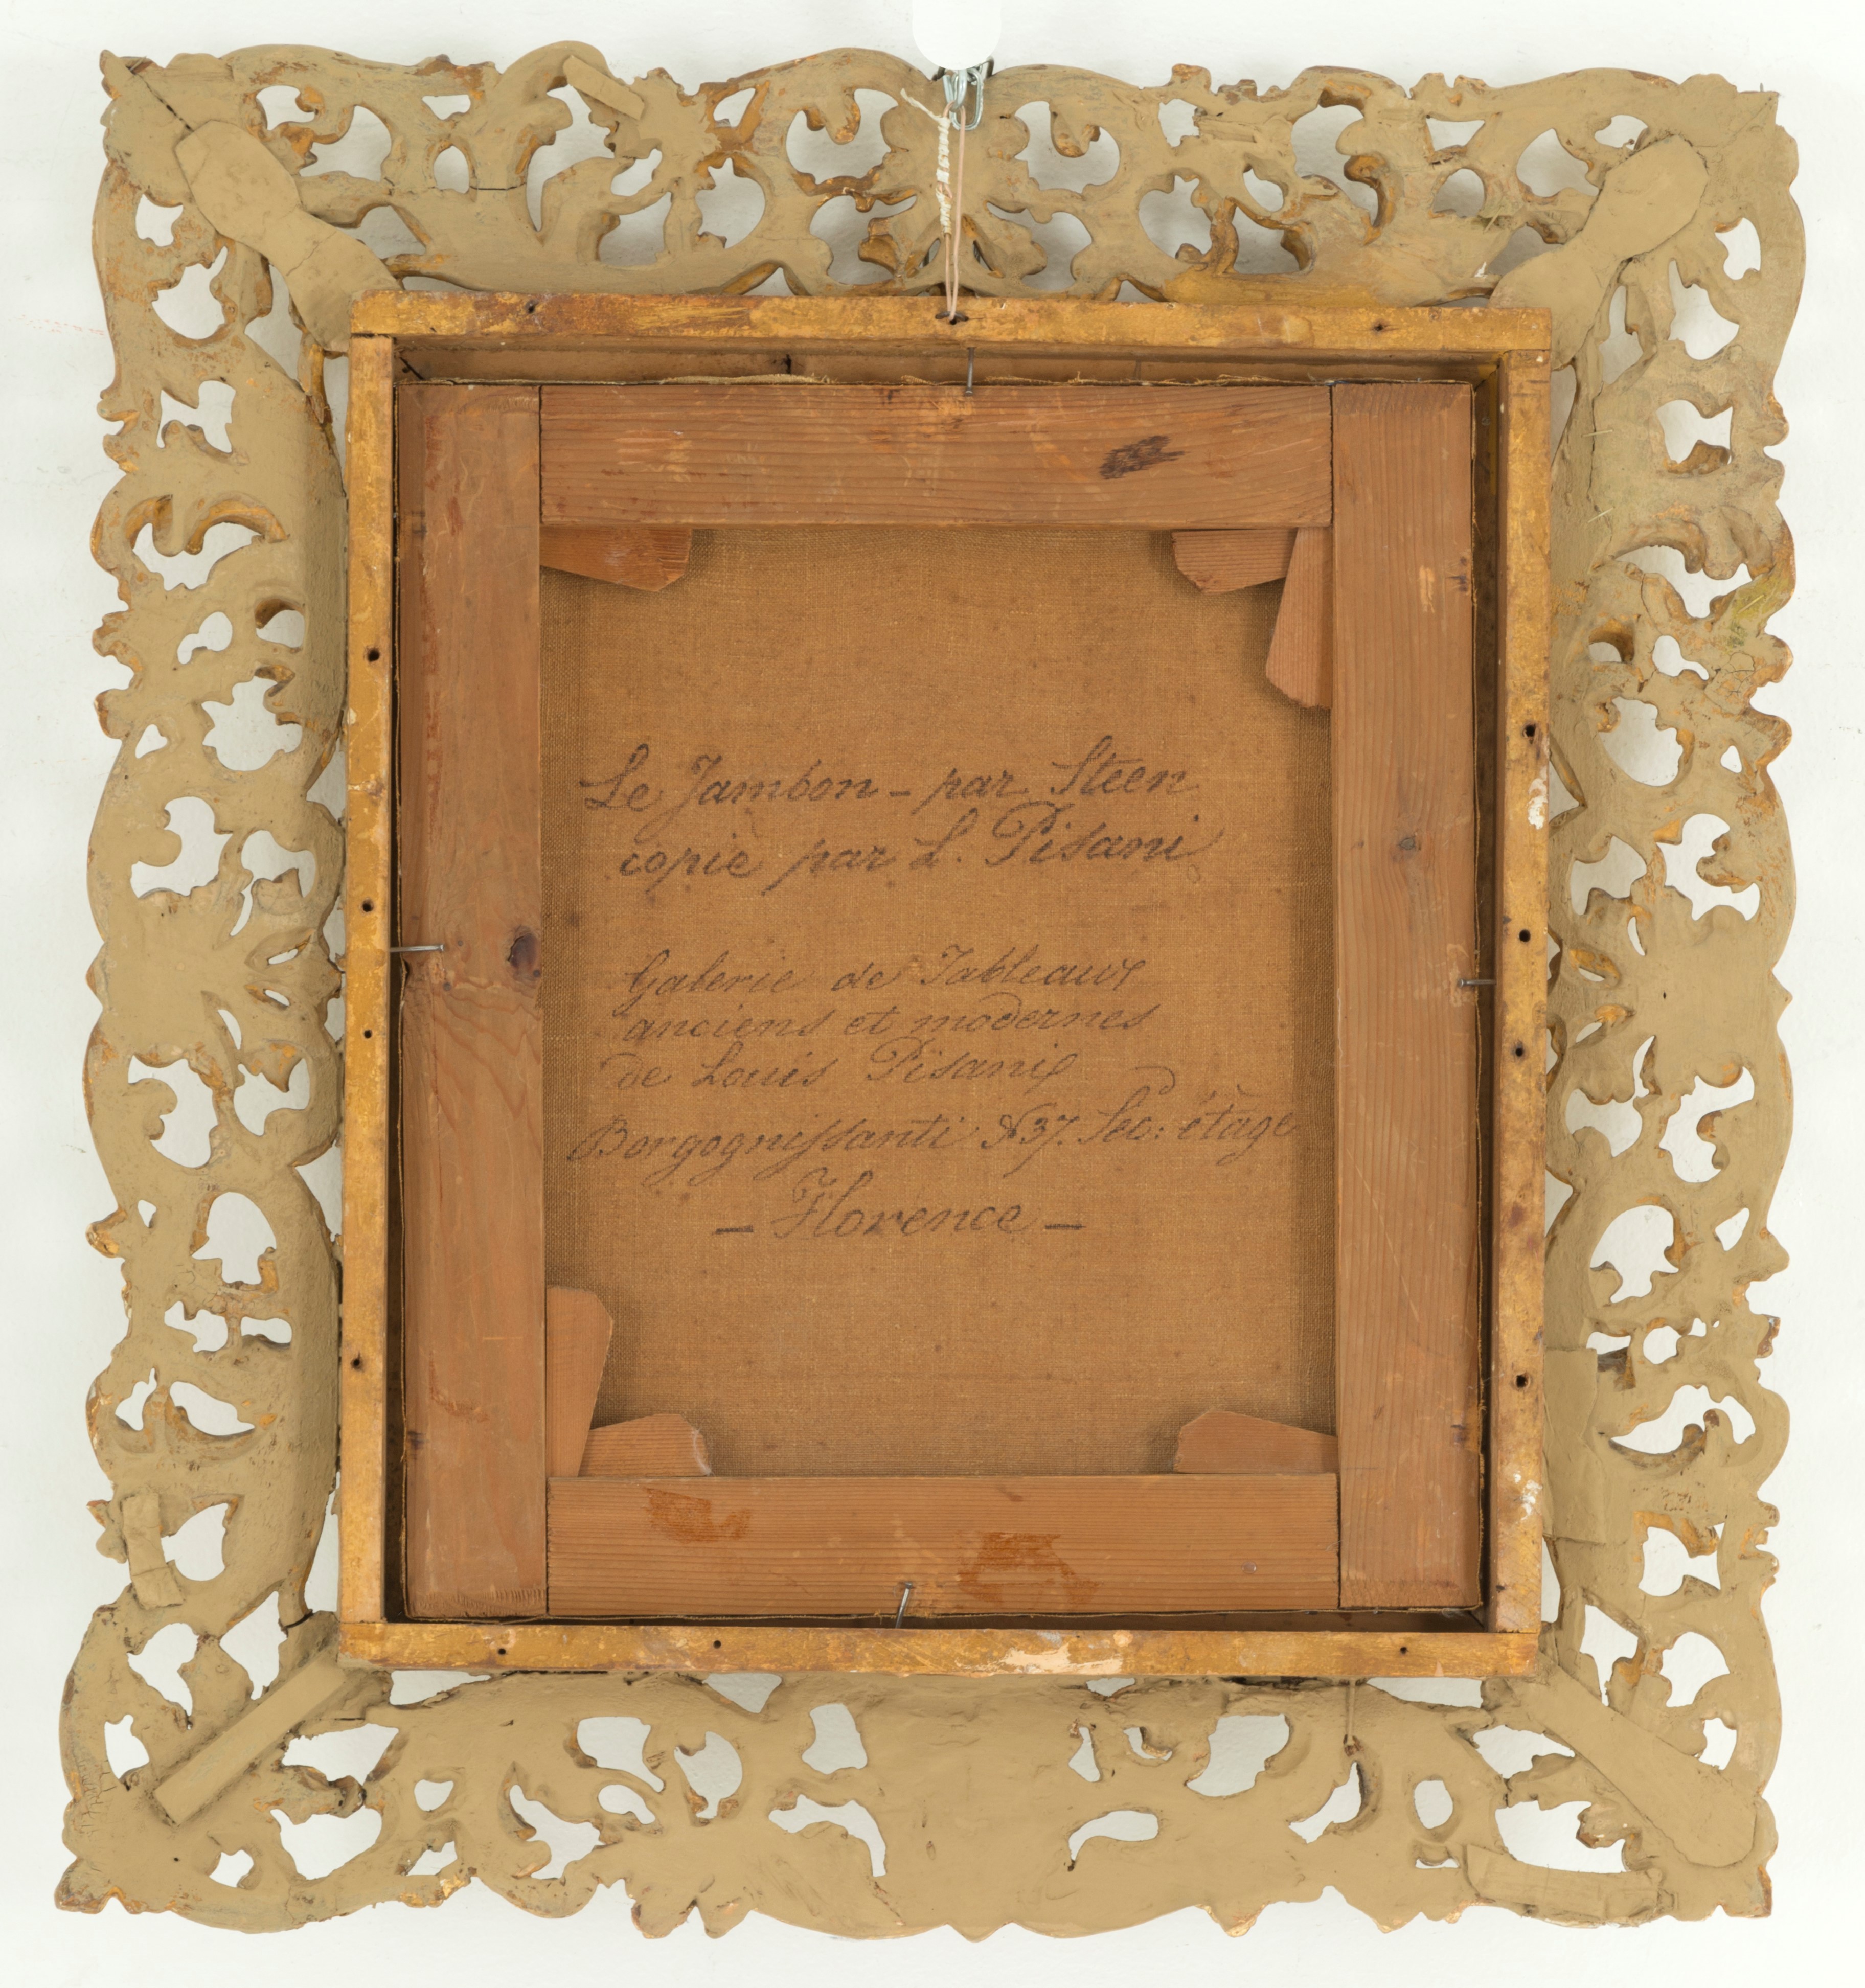 Le Jambon - par Steen
copié par L. Pisani
Galerie de Tableaux
anciens et modernes
de Louis Pisani
Borgognissanti N 37. Sec.d étage
- Florence -